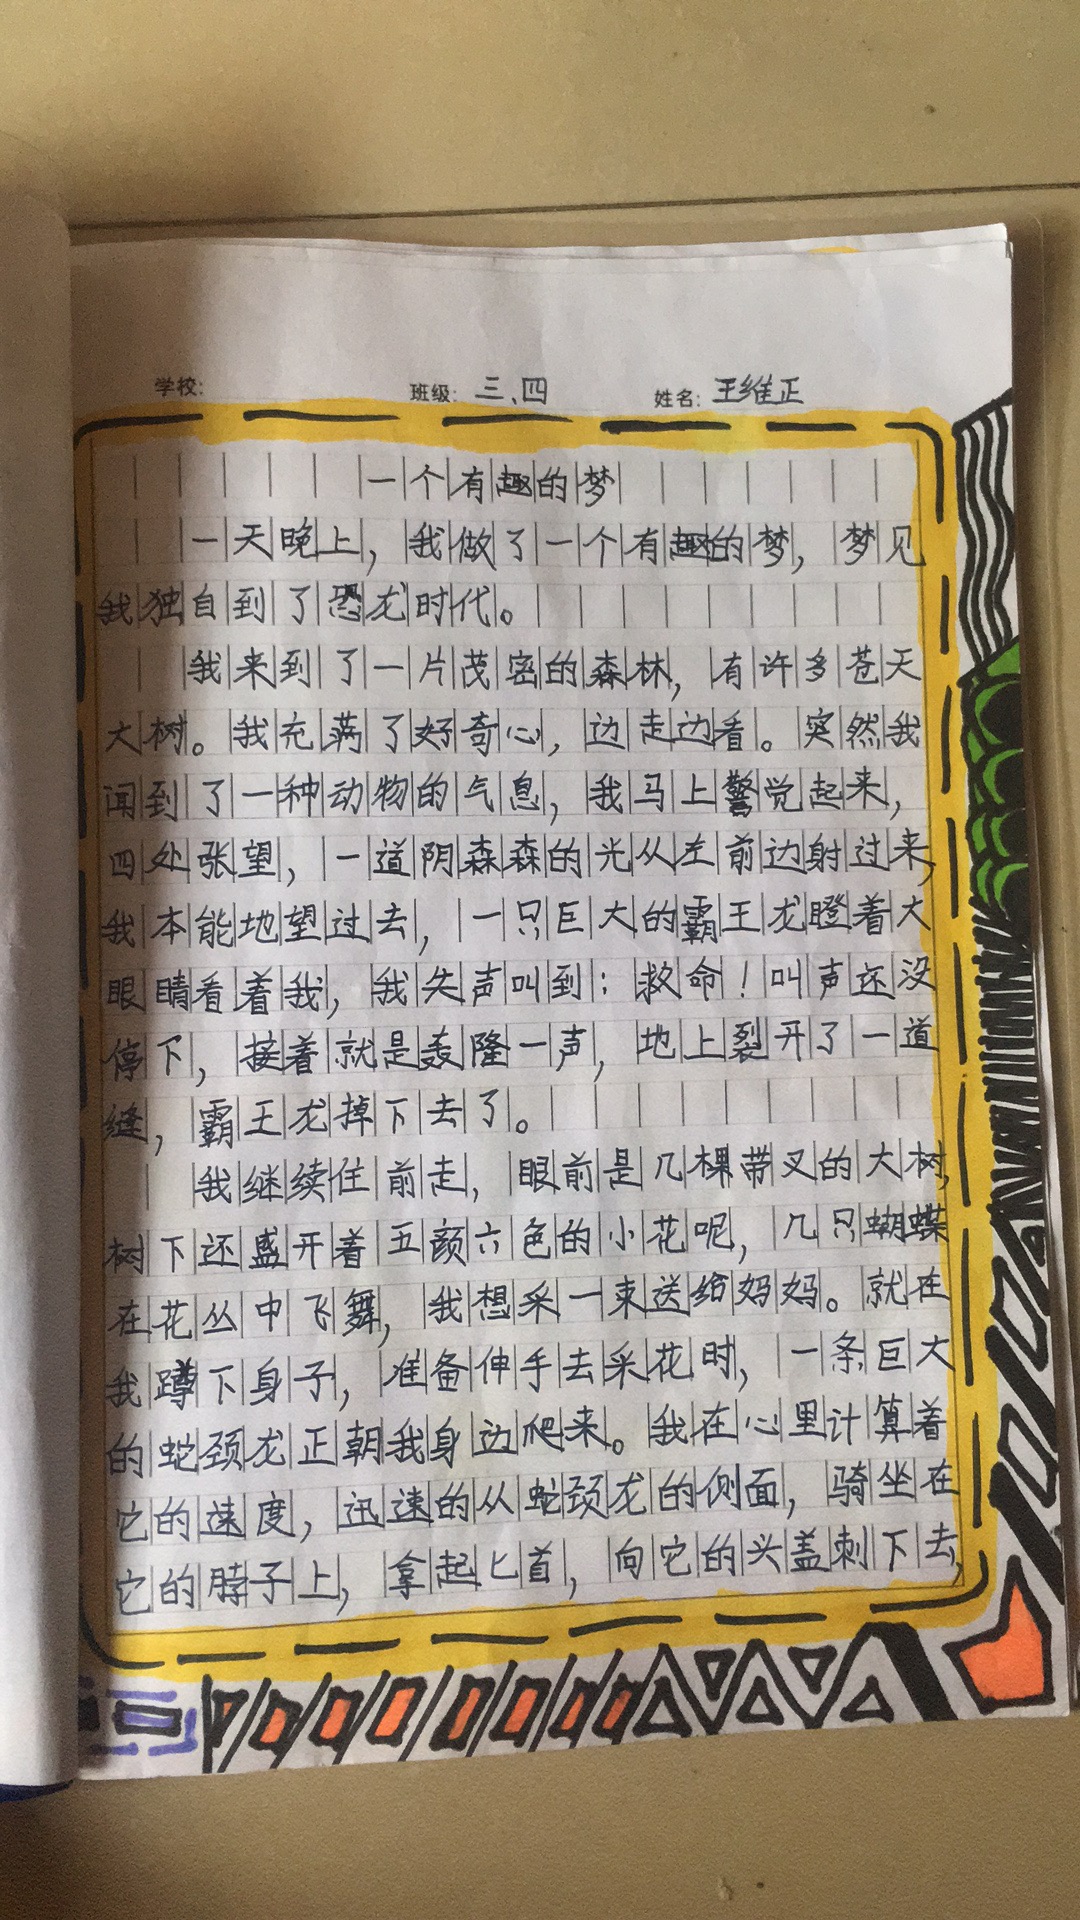 学校: 班级: 三、四 姓名: 王维正
一个有趣的梦
一天晚上，我做了一个有趣的梦，梦见
我独自到了恐龙时代。
我来到了一片茂密的森林，有许多苍天
大树。我充满了好奇心，边走边看。突然我
闻到了一种动物的气息，我马上警觉起来，
四处张望，一道阴森森的光从左前边射过来，
我本能地望过去，一只巨大的霸王龙瞪着大
眼睛看着我，我失声叫到：救命！叫声还没
停下，接着就是轰隆一声，地上裂开了一道
缝，霸王龙掉下去了。
我继续住前走，眼前是几棵带叉的大树，
树下还盛开着五颜六色的小花呢，几只蝴蝶
在花丛中飞舞，我想采一束送给妈妈。就在
我蹲下身子，准备伸手去采花时，一条巨大
的蛇颈龙正朝我身边爬来。我在心里计算着
它的速度，迅速的从蛇颈龙的侧面，骑坐在
它的脖子上，拿起匕首，向它的头盖刺下去，